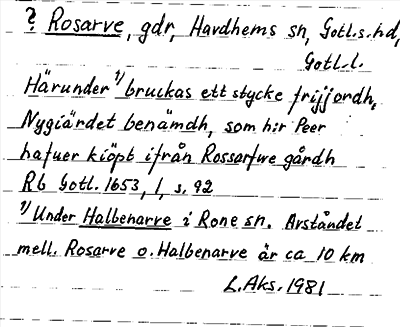 ? Rosarve, gdr, Havdhems sn, Gotl.s.hd,
Gotl.l.
Härunder 1) bruckas ett stycke frijjordh,
Nygiärdet benämdh, som h:r Peer
hafuer kiöpt ifrån Rossarfwe gårdh
Rb Gotl. 1653, 1, s. 92
1) Under Halbenarve i Rone sn. Avståndet
mell. Rosarve o. Halbenarve är ca 10 km
L.Aks. 1981